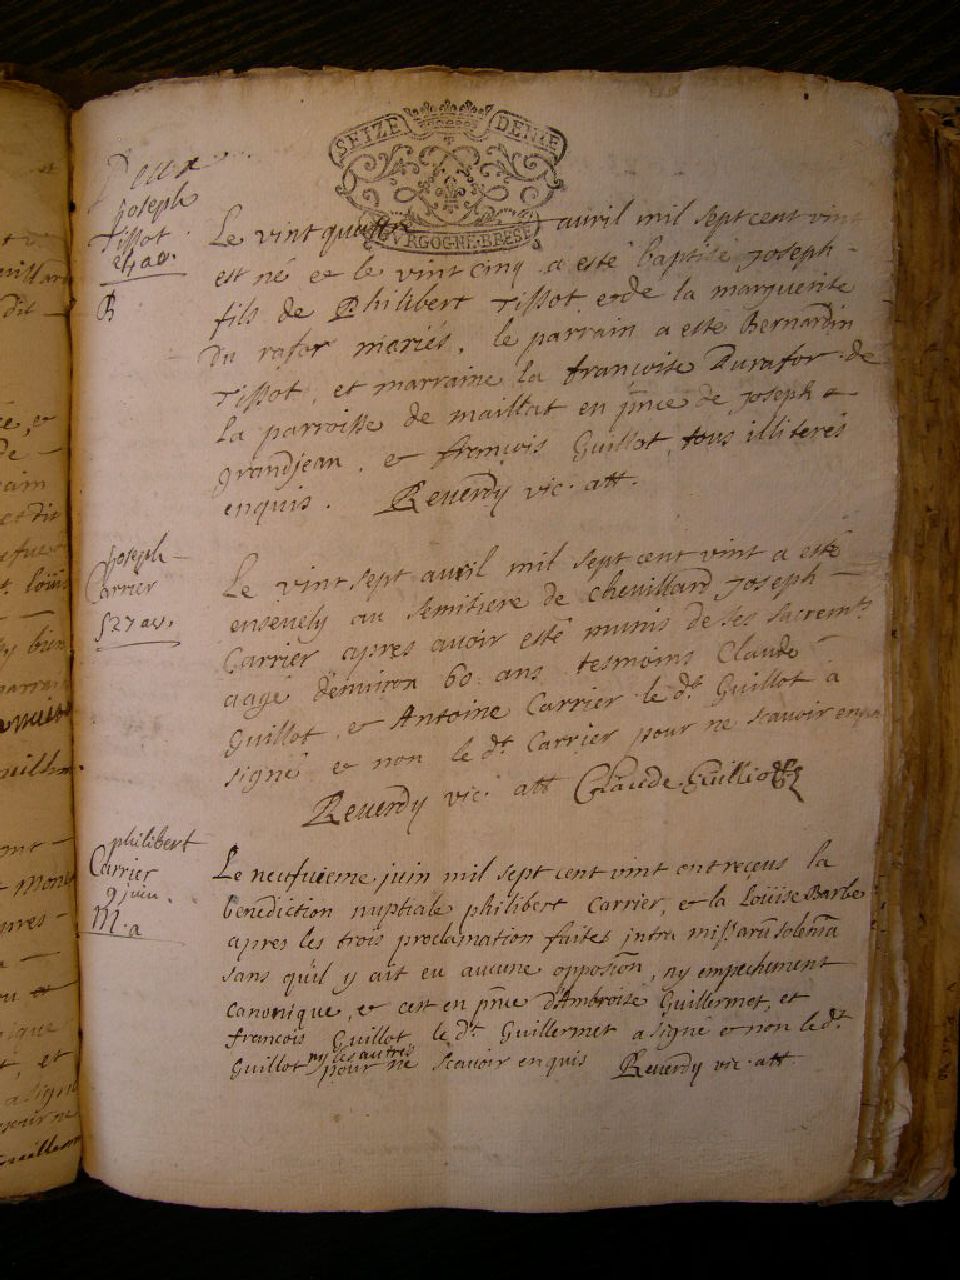 SEIZE DENIE
BOVRGOGNE·BRESSE
Deux
Joseph
Tissot
B
Le vint quatre avril mil sept cent vint
est né et le vint cinq a esté baptisé Joseph
fils de Philibert Tissot et de la marguerite
Du rafor mariés. le parrain a esté Bernardin
Tissot, et marraine la francoise Durafor de
la parroisse de maillat en pnce de Joseph
grandjean, et francois Guillot, tous illiterés
enquis. Reverdy vic. att.
Joseph
Carrier
Le vint sept avril mil sept cent vint a esté
ensevely au Semitiere de chevillard Joseph
Carrier apres avoir esté munis de ses sacremts
aagé denviron 60 ans tesmoins Claude
Guillot, et Antoine Carrier le dt Guillot a
signé et non le dt Carrier pour ne scavoir enquis
Reverdy vic. att Claude Guilliot
philibert
Carrier
9 juin.
M. a
Le neufuieme juin mil sept cent vint ont receus la
benediction nuptiale philibert Carrier, et la Loüise Barbe
apres les trois proclamation faites intra missarũ solemña
sans qu'il y ait eu aucune oppositõn, ny empechement
canonique, et cest en pnce d'Ambroise Guillermet, et
francois Guillot le dt Guillermet a signé et non le dt
Guillot ny les autres pour ne scavoir enquis Reverdy vic. att